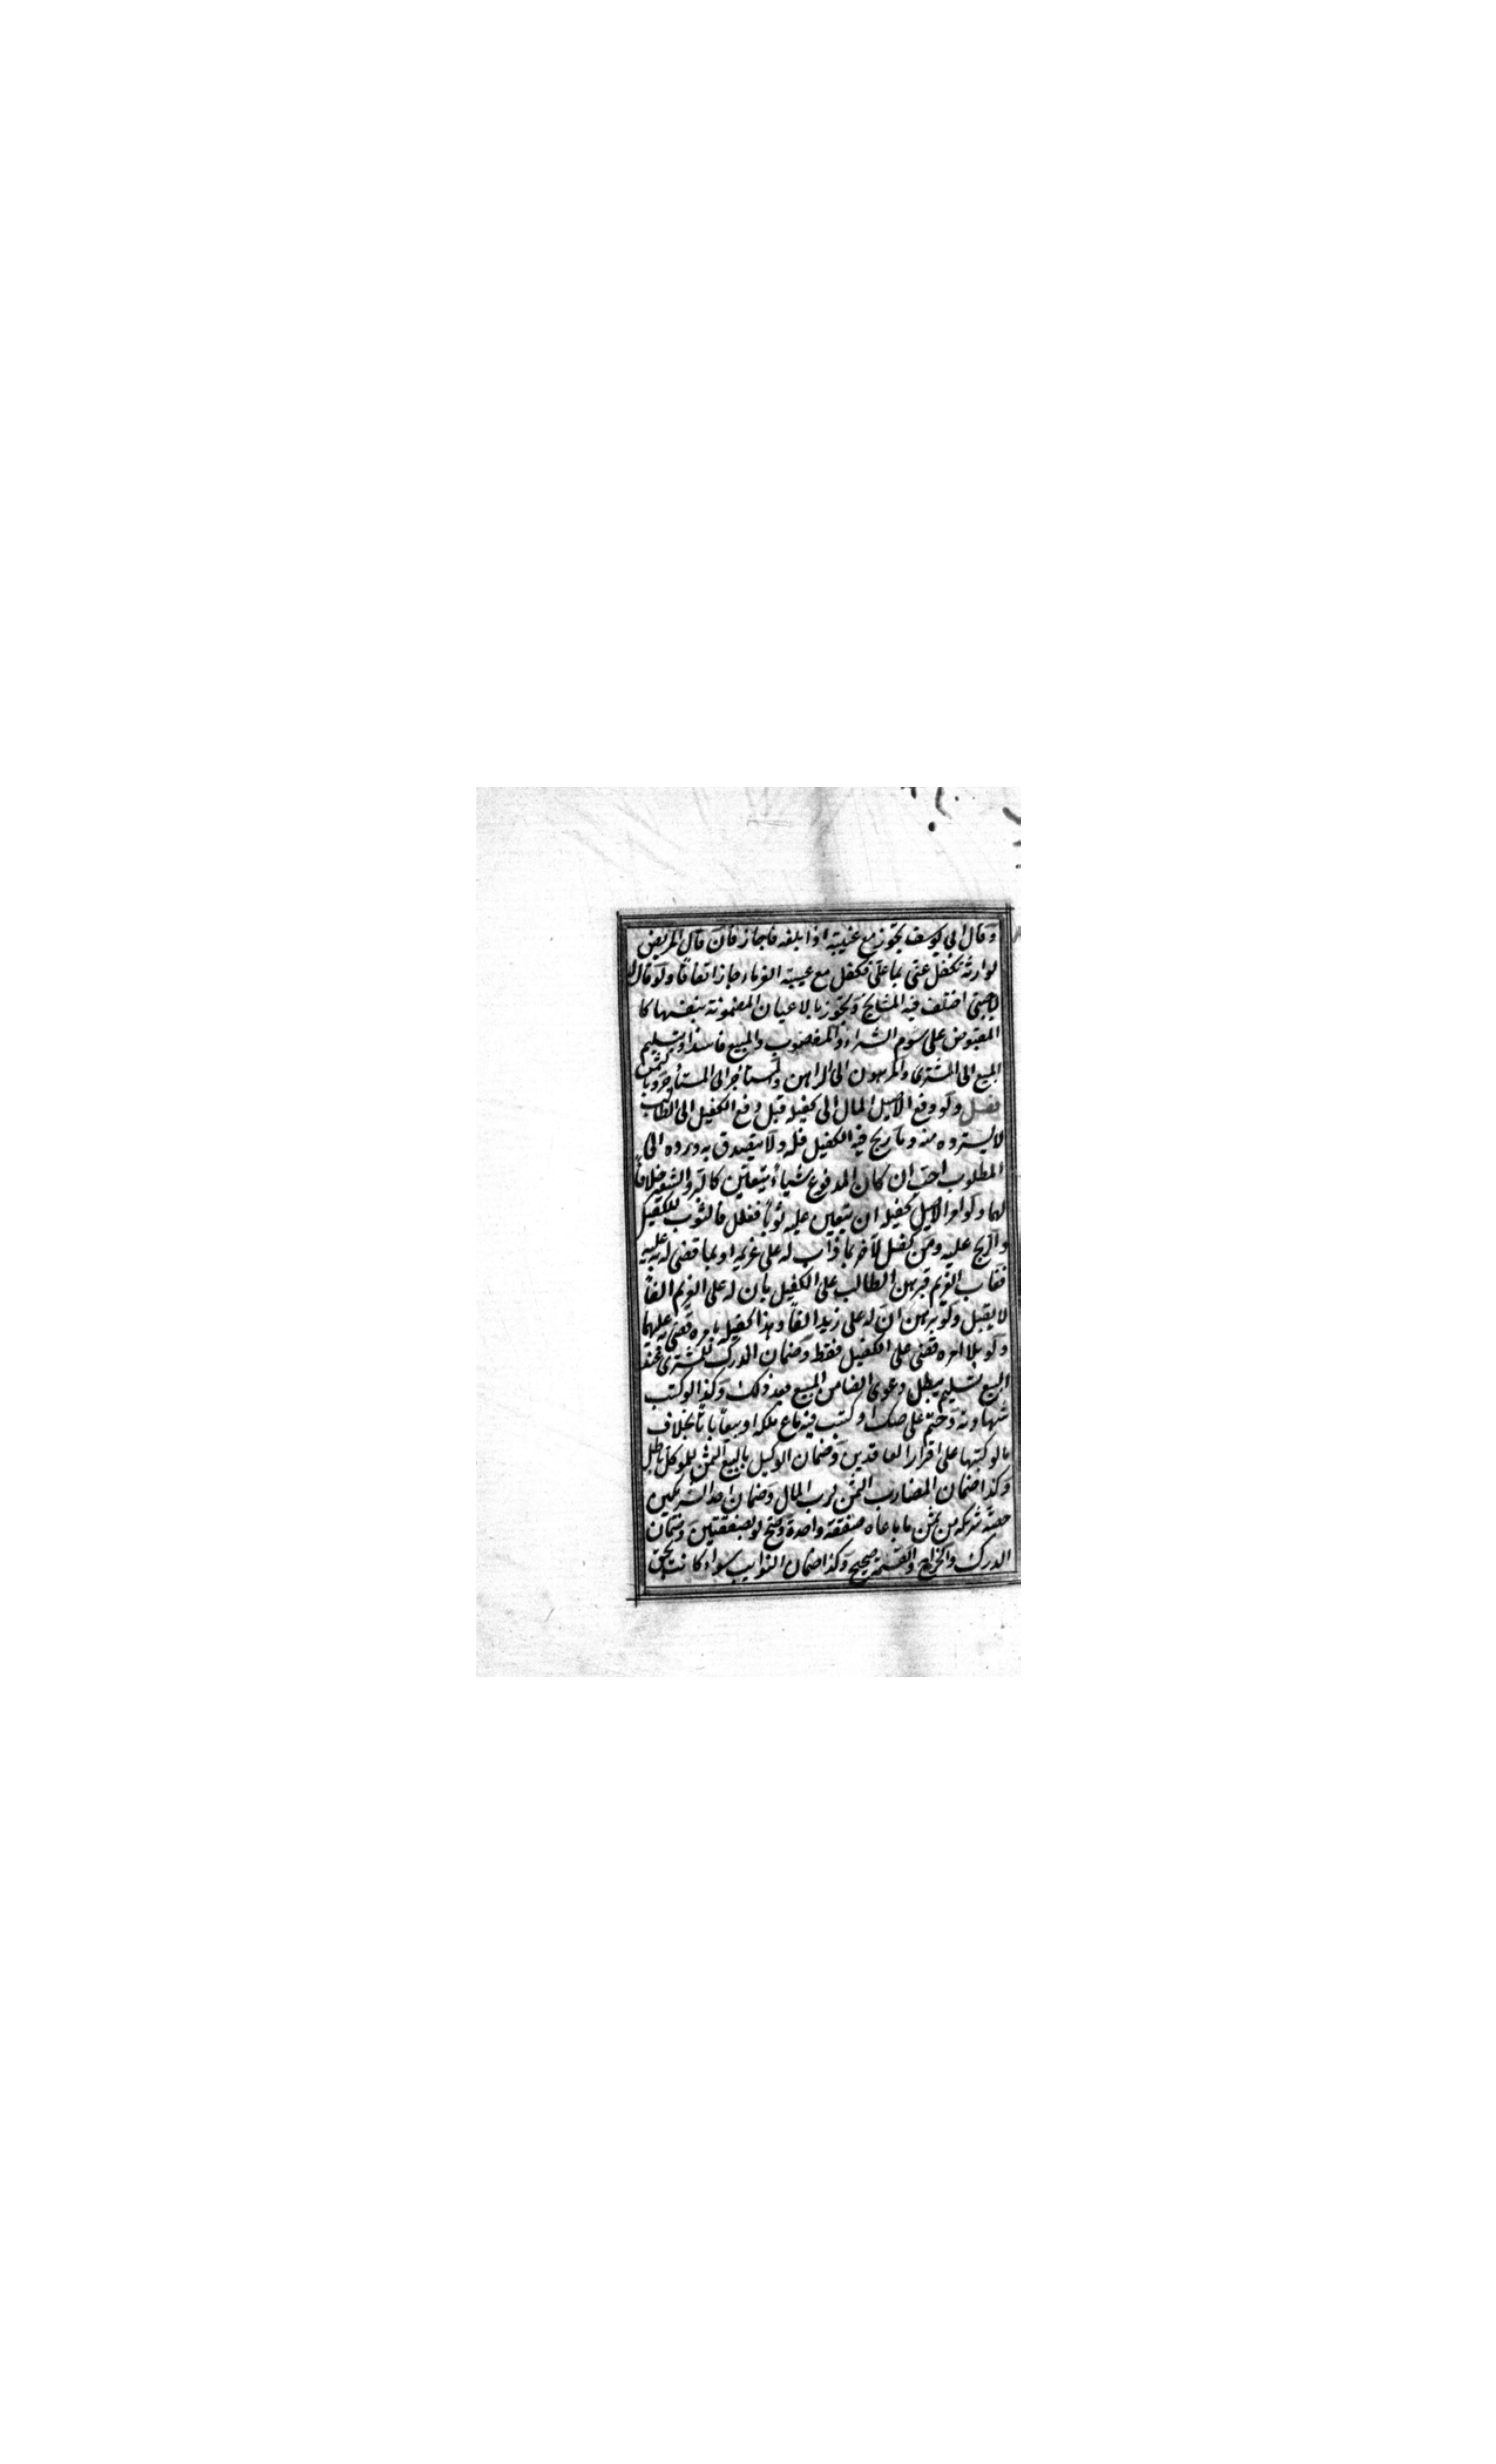 وقال ابي يوسف تجوز مع غيبته اذا بلغه فاجاز فان قال المريض
لوارثه تكفل عنى بما على فكفل مع غيبته الغرماء جاز اتفاقا ولو قال
لاجنبى اختلف فيه المشايخ وتجوز بالاعيان المضمونة بنفسها كا
المقبوض على سوم الشراء والمغصوب والمبيع فاسدا وبتسليم
المبيع الى المشترى والمرهون الى الراهن والمستأجر الى المستأجر وبالثمن
فصل ولو دفع الاصيل المال الى كفيله قبل دفع الكفيل الى الطالب
لا يسترده منه وما ربح فيه الكفيل فله ولا يتصدق به ورده الى
المطلوب احب ان كان المدفوع شياء يتعين كالبر والشعير خلافا
لهما ولو امر الاصيل كفيله ان يتعين عليه ثوبا ففعل فالثوب للكفيل
والربح عليه ومن كفل لآخر بما ذاب له على غريمه او بما قضى له عليه
فغاب الغريم فبرهن الطالب على الكفيل بان له على الغريم الفا
لا يقبل ولو برهن ان له على زيد الفا وهذا كفيله بامره قضى به عليهما
ولو بلا امره قضى على الكفيل فقط وضمان الدرك للمشترى عند
البيع تسليم يبطل دعوى الضامن المبيع بعد ذلك وكذا لو كتب
شهادته وختم على صك وكتب فيه باع ملكه او بيعا باتا بخلاف
ما لو كتبها على اقرار العاقدين وضمان الوكيل بالبيع الثمن للموكل باطل
وكذا ضمان المضارب الثمن لرب المال وضمان احد الشريكين
حصة شريكه من ثمن ما باعاه صفقة واحدة وصح لو بصفقتين وضمان
الدرك والخراج والقسمة صحيح وكذا ضمان النوايب سواء كانت بحق